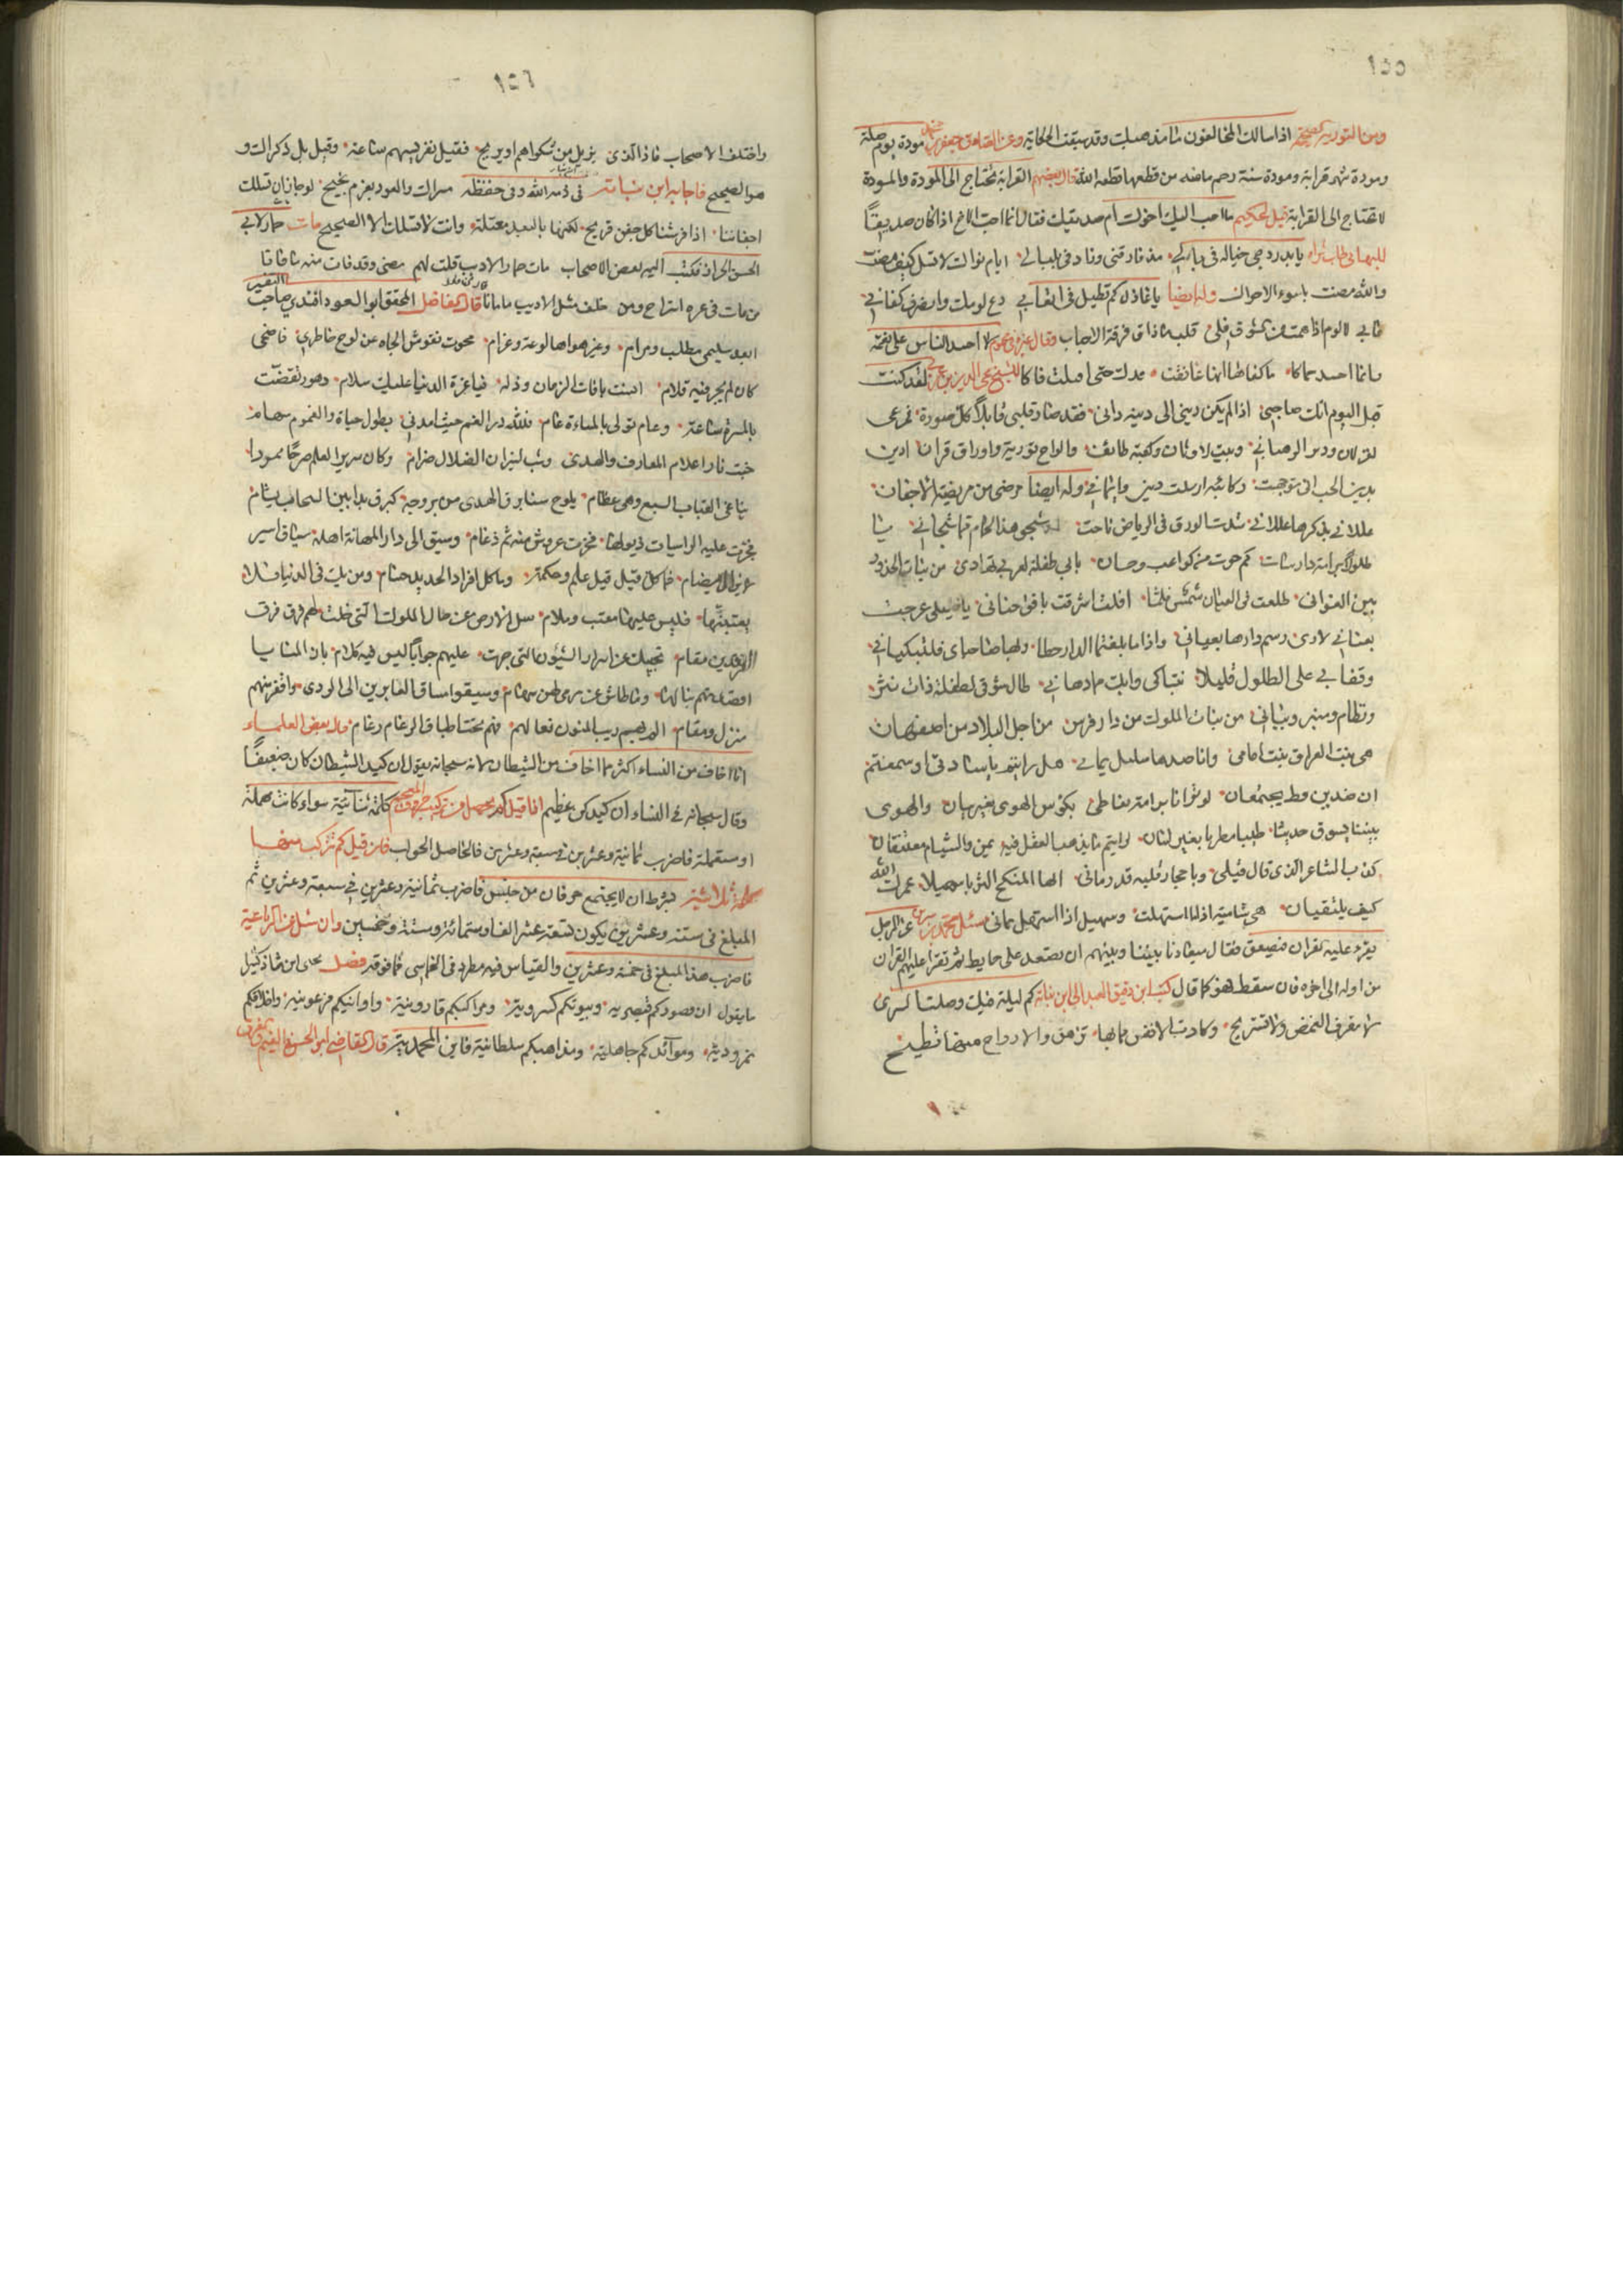 ١٥٥
ومن التورية اذا سالك المخالفون ما مذهبك وقد سبقت الحكاية وعن الصادق جعفر بن مودة يوم صلة
ومودة شهر قرابة ومودة سنة رحم ماضه من قطعها قطعه الله قال بعضهم القرابة تحتاج الى المودة والمودة
لا تحتاج الى القرابة قيل لحكيم ما احب اليك اخوك ام صديقك فقال انما احب الاخ اذا كان صديقاً
للبهائي طاب ثراه يا بدر دجى خياله في بالي مذ فارقني وزاد في بلبالي ايام نواك لا تسل كيف مضت
والله مضت باسوء الاحوال وله ايضا يا عاذل كم تطيل في اتعابي دع لومك وانصرف كفاني
مابي لا لوم اذا همت من الشوق فلي قلب ما ذاق فرقة الاحباب وقال لا احسد الناس على نعمة
وانما احسد حماكا ما كفاها انها عانقت قدك حتى قبلت فاكا للشيخ محي الدين بن عربي لقد كنت
قبل اليوم انكر صاحبي اذا لم يكن ديني الى دينه داني فقد صار قلبي قابلاً كل صورة فمرعى
لغزلان ودير لرهباني وبيت لاوثان وكعبة طائف والواح تورية واوراق قران ادين
بدين الحب انى توجهت ركائبه ارسلت ديني وايماني وله ايضا مرضي من مريضة الاجفان
عللاني بذكرها عللاني شدت الورق في الرياض ناحت شجو هذا الحمام مما شجاني يا
طلولا برامة دارسات كم حوت من كواعب وحسان بابي طفلة لعوب تهادى من بنات الخدور
بين الغواني طلعت في العيان شمسا فلما افلت اشرقت بافق جناني يا خليلي عرجا
بعناني لارى رسم دارها بعياني واذا ما بلغتما الدار حطا وبها صاحباي فلتبكياني
وقفا بي على الطلول قليلا نتباكى وابك مما دهاني طال شوقي لطفلة ذات نثر
ونظام ومنبر وبيان من بنات الملوك من دار فرس من اجل البلاد من اصفهان
هي بنت العراق بنت امامي وانا ضدها سليل يماني هل رايتم يا سادتي او سمعتم
ان ضدين قط يجتمعان لو ترانا برامة نتعاطى بكؤس الهوى بغير بنان والهوى
بيننا يسوق حديثا طيبا مطربا بغير لسان لرايتم ما يذهب العقل فيه يمن والشام معتنقان
كذب الشاعر الذي قال قبلي وباحجار قلبه قد رماني ايها المنكح الثريا سهيلا عمرك الله
كيف يلتقيان هي شامية اذا ما استهلت وسهيل اذا استهل يماني سئل محمد بن سيرين عن الرجل
يقرء عليه القران فيصعق فقال ميعادنا بيننا وبينهم ان يصعد على حايط ثم تقرا عليهم القران
من اوله الى اخره فان سقط فهو كما قال كتب ابن دقيق العيد الى ابن نباتة كم ليلة فيك وصلنا السرى
لا نعرف الغمض ولا نستريح وكادت الانفس مما بها تزهق والارواح منها تطيح
١٥٦
واختلف الاصحاب ماذا الذي يزيل من شكواهم او يريح فقيل تعريسهم ساعة وقيل بل ذكراك و
هو الصحيح فاجابه ابن نباتة في ذمة الله وفي حفظه مسراك والعود بعزم نجيح لو جاز ان تسلك
اجفاننا اذا فرشنا كل جفن قريح لكنها بالبعد معتلة وانت لا تسلك الا الصحيح مات حمار لابي
الحسن الجزار فكتب اليه بعض الاصحاب مات حمار الاديب قلت لهم مضى وقد فات منه ما فاتا
من مات في عزه استراح ومن خلف مثل الاديب ما ماتا قال الفاضل المحقق ابو السعود افندي صاحب التفسير
ابعد سليمى مطلب ومرام وغير هواها لوعة وغرام محوت نقوش الجاه عن لوح خاطري فاضحى
كان لم يجر فيه قلام انست بافات الزمان وذله فيا عزة الدنيا عليك سلام دهور تقضت
بالمسرة ساعة وعام تولى بالمساءة عام فلله در الغم حيث امدني بطول حياة والهموم سهام
خبت نار اعلام المعارف والهدى وشب لنيران الضلال ضرام وكان سرير العلم صرحا ممردا
يناغي القباب السبع وهي عظام يلوح سنا برق الهدى من بروجه كبرق بدا بين السحاب يشام
فجرت عليه الراسيات ذيولها فخرت عروش منه ثم دعام وسيق الى دار المهانة اهله مساق اسير
لا يزال يضام فما كل قيل قيل علم وحكمة وما كل افراد الحديد حسام ومن يك في الدنيا فلا
يعتبنها فليس عليها معتب وملام سل الارض عن حال الملوك التي خلت لهم فوق فرق
الفرقدين مقام تجبك عن اسرار الشؤون التي جرت عليهم جواباً ليس فيه كلام بان المنايا
اقصدتهم نبالها وما طاش عن مرمى لهن سهام وسيقوا مساق الغابرين الى الردى واقفر منهم
منزل ومقام المهم ريب المنون فغالهم فهم تحت اطباق الرغام رغام قال بعض العلماء
انا اخاف من النساء اكثر مما اخاف من الشيطان لانه سبحانه يقول ان كيد الشيطان كان ضعيفاً
وقال سبحانه في النساء ان كيدكن عظيم اذا قيل كم يحصل من تركيب حروف المعجم كلمة ثنائية سواء كانت مهملة
او مستعملة فاضرب ثمانية وعشرين في سبعة وعشرين فالحاصل الجواب فان قيل كم تتركب منها
كلمة ثلاثية بشرط ان لا يجتمع حرفان من جنس فاضرب ثمانية وعشرين في سبعة وعشرين ثم
المبلغ في ستة وعشرين يكون تسعة عشر الفا وستمائة وستة وخمسين وان سئل عن الرباعية
فاضرب هذا المبلغ في خمسة وعشرين والقياس فيه مطرد في الخماسي فما فوقه فصل
ما يقول ان قصوركم قيصرية وبيوتكم كسروية ومراكبكم قارونية واوانيكم فرعونية واخلاقكم
نمرودية وموائدكم جاهلية ومذاهبكم سلطانية فاين المحمدية قال القاضي ابو الحسن